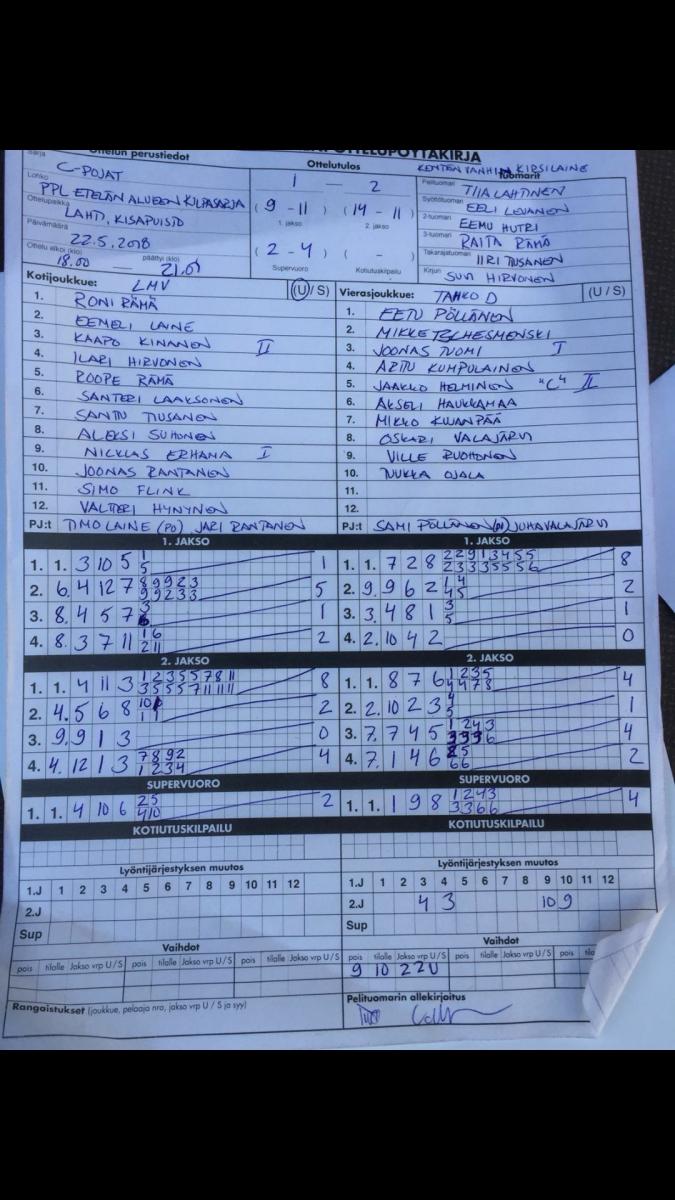 Ottelun perustiedot
OTTELUPÖYTÄKIRJA
Sarja
C-POJAT
Ottelutulos
KENTÄN VANHIN KIRSI LAINE
Tuomarit
Lohko
PPL ETELÄN ALUEEN KILPASARJA
1 — 2
Pelituomari TIIA LAHTINEN
Ottelupaikka
LAHTI, KISAPUISTO
(9 - 11) (14 - 11)
1. jakso 2. jakso
Syöttötuomari EELI LEVANEN
2-tuomari EEMU HUTRI
Päivämäärä
22.5.2018
3-tuomari RAITA RÄMÄ
Ottelu alkoi (klo) päättyi (klo)
18.00 — 21.01
(2 - 4) ( - )
Supervuoro Kotiutuskilpailu
Takarajatuomari IIRI TIUSANEN
Kirjuri SUVI HIRVONEN
Kotijoukkue: LMV (U / S)
Vierasjoukkue: TAHKO D (U / S)
1. RONI RÄMÄ
2. EEMELI LAINE
3. KAAPO KINANEN II
4. ILARI HIRVONEN
5. ROOPE RÄMÄ
6. SANTERI LAAKSONEN
7. SANTTU TIUSANEN
8. ALEKSI SUHONEN
9. NICKLAS ERHANA I
10. JOONAS RANTANEN
11. SIMO FLINK
12. VALTTERI HYNYNEN
PJ:t TIMO LAINE (PO) JARI RANTANEN
1. EETU PÖLLÄNEN
2. MIKKE
3. JOONAS TUOMI I
4. ARTU KUMPULAINEN
5. JAAKKO HELMINEN "C" II
6. AKSELI HAUKKAMAA
7. MIKKO KUJANPÄÄ
8. OSKARI VALAJÄRVI
9. VILLE RUOHONEN
10. TUUKKA OJALA
11.
12.
PJ:t SAMI PÖLLÄNEN JUHA VALAJÄRVI
1. JAKSO
1. 1. 3 10 5 1 5 1
2. 6. 4 12 7 8 9 9 2 3 9 9 2 3 3 5
3. 8. 4 5 7 3 1
4. 8. 3 7 11 1 6 2 11 2
1. JAKSO
1. 1. 7 2 8 2 2 9 1 3 4 5 5 2 3 3 3 5 5 5 6 8
2. 9. 9 6 2 1 4 4 5 2
3. 3. 4 8 1 3 5 1
4. 2. 10 4 2 0
2. JAKSO
1. 1. 4 11 3 1 2 3 5 5 7 8 11 3 5 5 5 7 11 11 11 8
2. 4. 5 6 8 2
3. 9. 9 1 3 0
4. 4. 12 1 3 7 8 9 2 1 2 3 4 4
2. JAKSO
1. 1. 8 7 6 1 2 3 5 4 4 7 8 4
2. 2. 10 2 3 4 5 1
3. 7. 7 4 5 1 2 4 3 3 3 3 6 4
4. 7. 1 4 6 2 5 6 6 2
SUPERVUORO
1. 1. 4 10 6 2 5 4 10 2
SUPERVUORO
1. 1. 1 9 8 1 2 4 3 3 3 6 6 4
KOTIUTUSKILPAILU
KOTIUTUSKILPAILU
Lyöntijärjestyksen muutos
1.J 1 2 3 4 5 6 7 8 9 10 11 12
2.J
Sup
Lyöntijärjestyksen muutos
1.J 1 2 3 4 5 6 7 8 9 10 11 12
2.J 4 3 10 9
Sup
Vaihdot
pois tilalle Jakso vrp U / S pois tilalle Jakso vrp U / S pois tilalle Jakso vrp U / S
Vaihdot
pois tilalle Jakso vrp U / S pois tilalle Jakso vrp U / S pois tilalle Jakso
9 10 2 2 U
Rangaistukset (joukkue, pelaaja nro, jakso vrp U / S ja syy)
Pelituomarin allekirjoitus